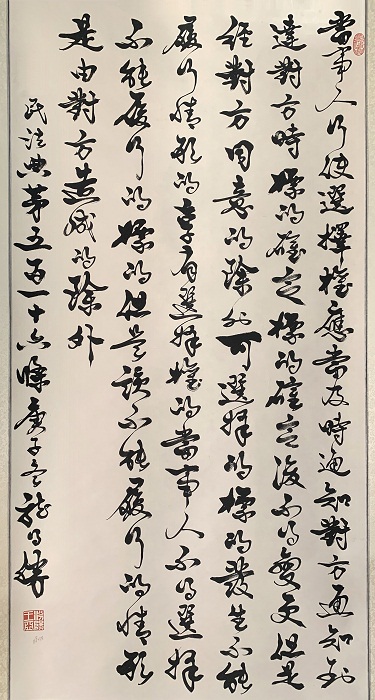 當事人行使選擇權應當及時通知對方通知到
達對方時標的確定標的確定後不得變更但是
經對方同意的除外可選擇的標的發生不能
履行情形的享有選擇權的當事人不得選擇
不能履行的標的但是該不能履行的情形
是由對方造成的除外
民法典第五百一十六條庚子冬